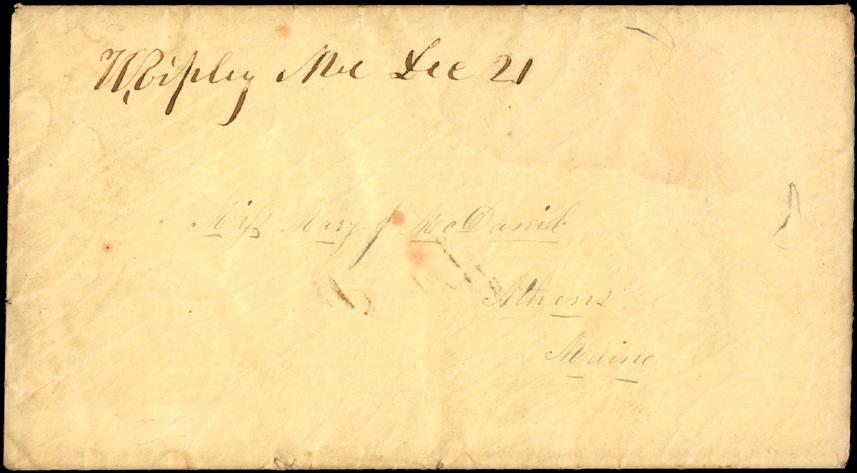 W Ripley Me Dec 21
Miss Mary J McDaniel
Athens
Maine